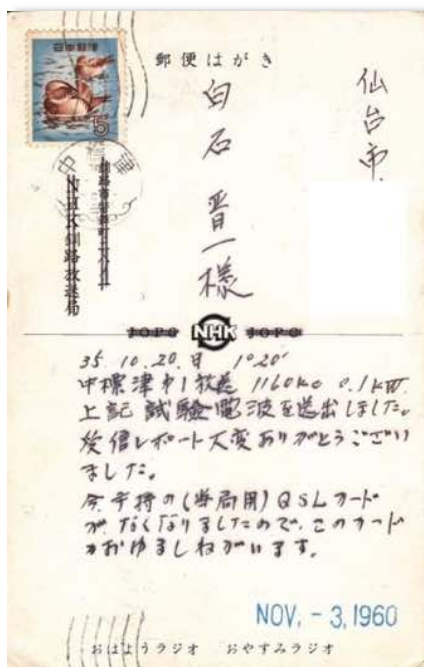 郵便はがき
仙台市
白石晋一様
日本郵便
5
中標津
NHK釧路放送局
JOPG NHK JOPG
35.10.20.日 1°20′
中標津第1放送 1160kc 0.1kW.
上記試験電波を送出しました。
受信レポート大変ありがとうござい
ました。
今手持の(当局用)QSLカード
がなくなりましたので、このカード
でおゆるしねがいます。
NOV. -3,1960
おはようラジオ おやすみラジオ